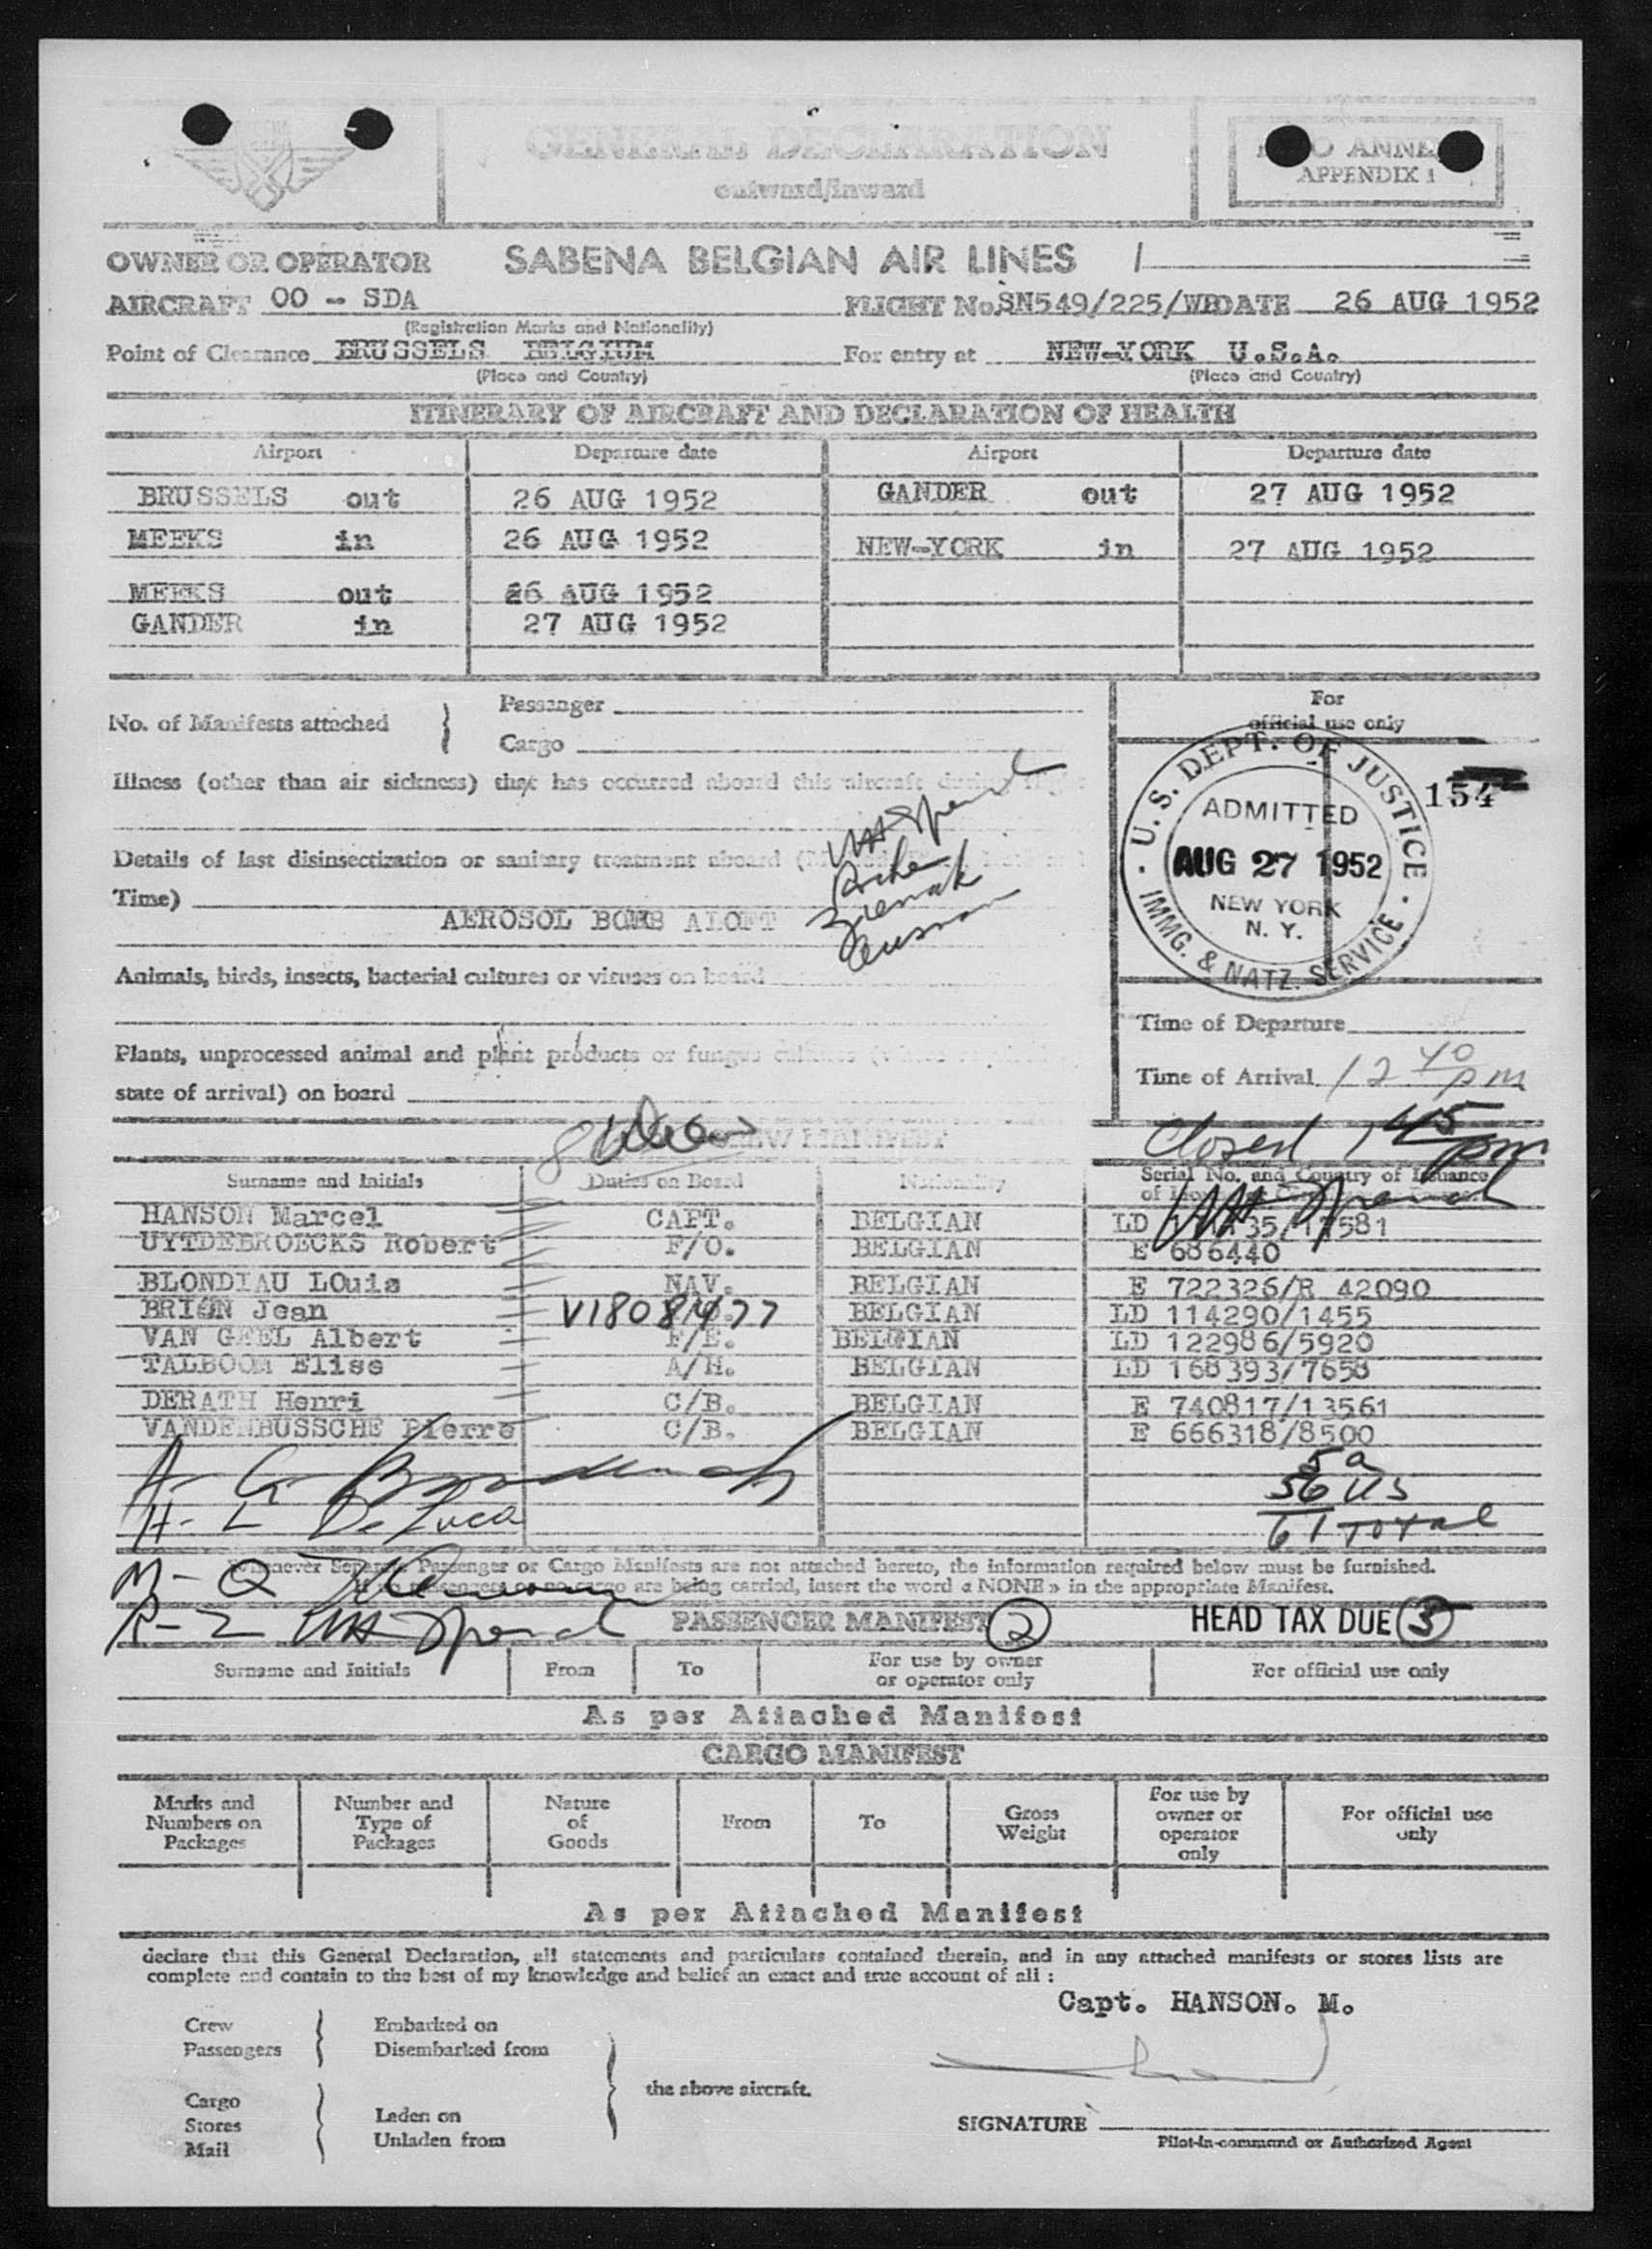 GENERAL DECLARATION
outward/inward
ANNE
APPENDIX 1
OWNER OR OPERATOR SABENA BELGIAN AIR LINES
AIRCRAFT OO - SDA FLIGHT No. SN549/225/WB DATE 26 AUG 1952
(Registration Marks and Nationality)
Point of Clearance BRUSSELS BELGIUM For entry at NEW-YORK U.S.A.
(Place and Country) (Place and Country)
ITINERARY OF AIRCRAFT AND DECLARATION OF HEALTH
Airport Departure date Airport Departure date
BRUSSELS out 26 AUG 1952 GANDER out 27 AUG 1952
MEEKS in 26 AUG 1952 NEW-YORK in 27 AUG 1952
MEEKS out 26 AUG 1952
GANDER in 27 AUG 1952
No. of Manifests attached
Passenger
Cargo
For
official use only
Illness (other than air sickness) that has occurred aboard this aircraft during
154
U.S. DEPT. OF JUSTICE
ADMITTED
AUG 27 1952
NEW YORK
N. Y.
IMMG. & NATZ. SERVICE
Details of last disinsectization or sanitary treatment aboard
Time)
AEROSOL BOMB ALOFT
Animals, birds, insects, bacterial cultures or viruses on board
Time of Departure
Plants, unprocessed animal and plant products or fungus cultures
Time of Arrival 12 40 pm
state of arrival) on board
Closed 1 45 pm
CREW MANIFEST
Surname and Initials Duties on Board Nationality Serial No. and Country of Issuance
HANSON Marcel CAPT. BELGIAN LD
UYTDEBROECKS Robert F/O. BELGIAN E 686440
BLONDIAU LOuis NAV. BELGIAN E 722326/R 42090
BRION Jean V1808/477 BELGIAN LD 114290/1455
VAN GEEL Albert F/E. BELGIAN LD 122986/5920
TALBOOM Elise A/H. BELGIAN LD 168393/7658
DERATH Henri C/B. BELGIAN E 740817/13561
VANDENBUSSCHE Pierre C/B. BELGIAN E 666318/8500
5 a
56 US
61 Total
A- G
H- L De Luca
Whenever Separate Passenger or Cargo Manifests are not attached hereto, the information required below must be furnished.
If no passengers or no cargo are being carried, insert the word « NONE » in the appropriate Manifest.
M- Q
R-Z
PASSENGER MANIFEST 2 HEAD TAX DUE 5
Surname and Initials From To For use by owner or operator only For official use only
As per Attached Manifest
CARGO MANIFEST
Marks and Numbers on Packages Number and Type of Packages Nature of Goods From To Gross Weight For use by owner or operator only For official use only
As per Attached Manifest
declare that this General Declaration, all statements and particulars contained therein, and in any attached manifests or stores lists are
complete and contain to the best of my knowledge and belief an exact and true account of all :
Capt. HANSON. M.
Crew Embarked on
Passengers Disembarked from
the above aircraft.
Cargo
Stores Laden on
Mail Unladen from
SIGNATURE
Pilot-in-command or Authorized Agent